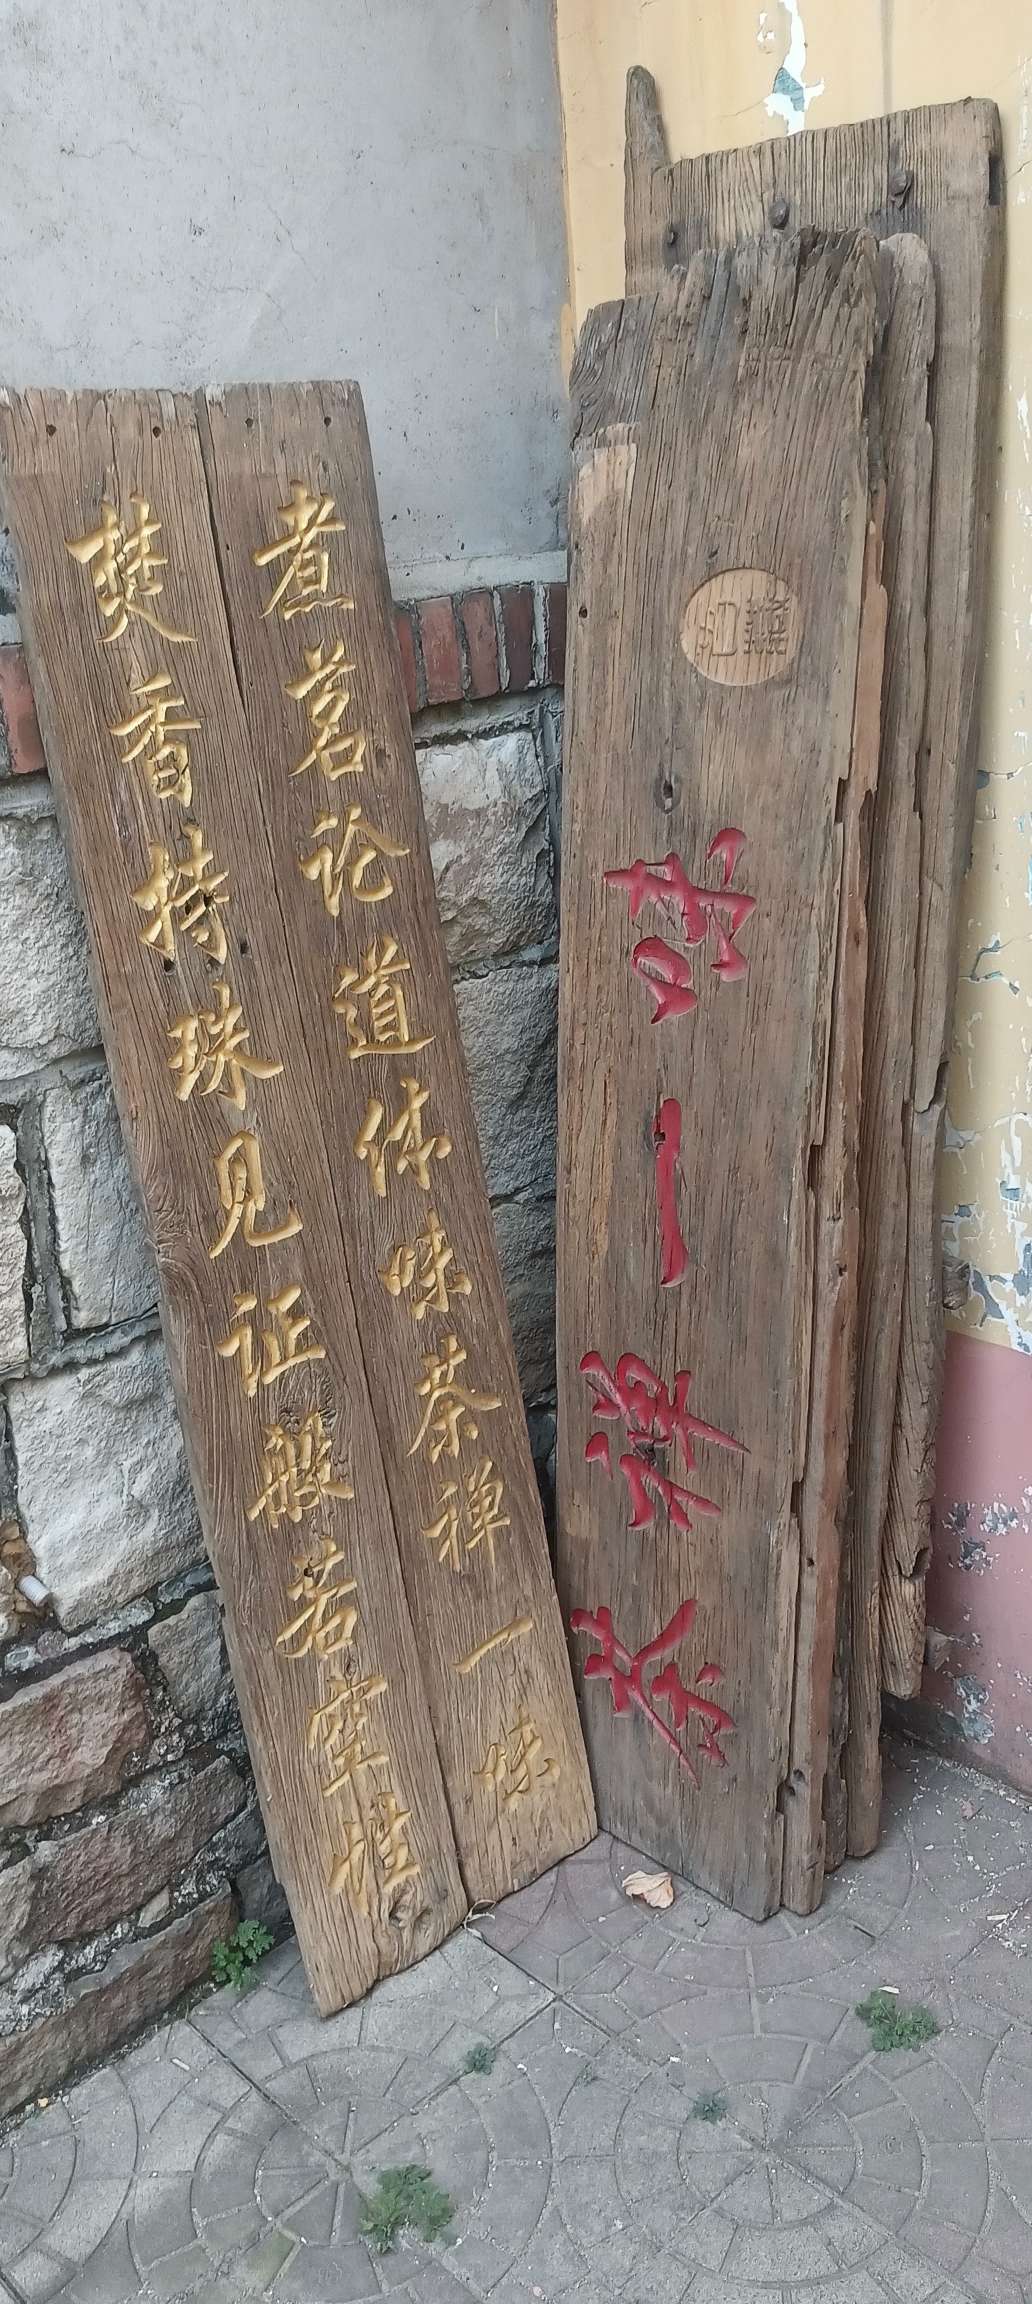 煮茗论道体味茶禅一味
焚香持珠见证般若空性
茶禅一味